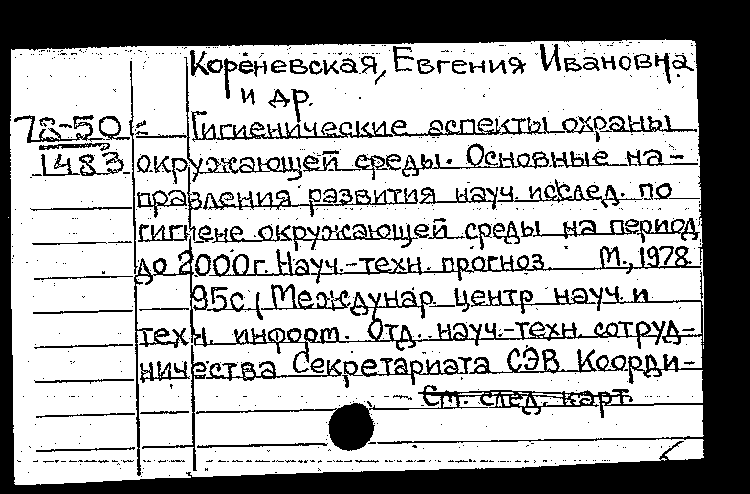 Кореневская, Евгения Ивановна
и др.
78-50 Гигиенические аспекты охраны
1483 окружающей среды. Основные на-
правления развития науч. исслед. по
гигиене окружающей среды на период
до 2000г. Науч.-техн. прогноз М., 1978
95с (Междунар центр науч. и
техн. информ. Отд. науч.-техн. сотруд-
ничества Секретариата СЭВ Коорди-
См. след. карт.